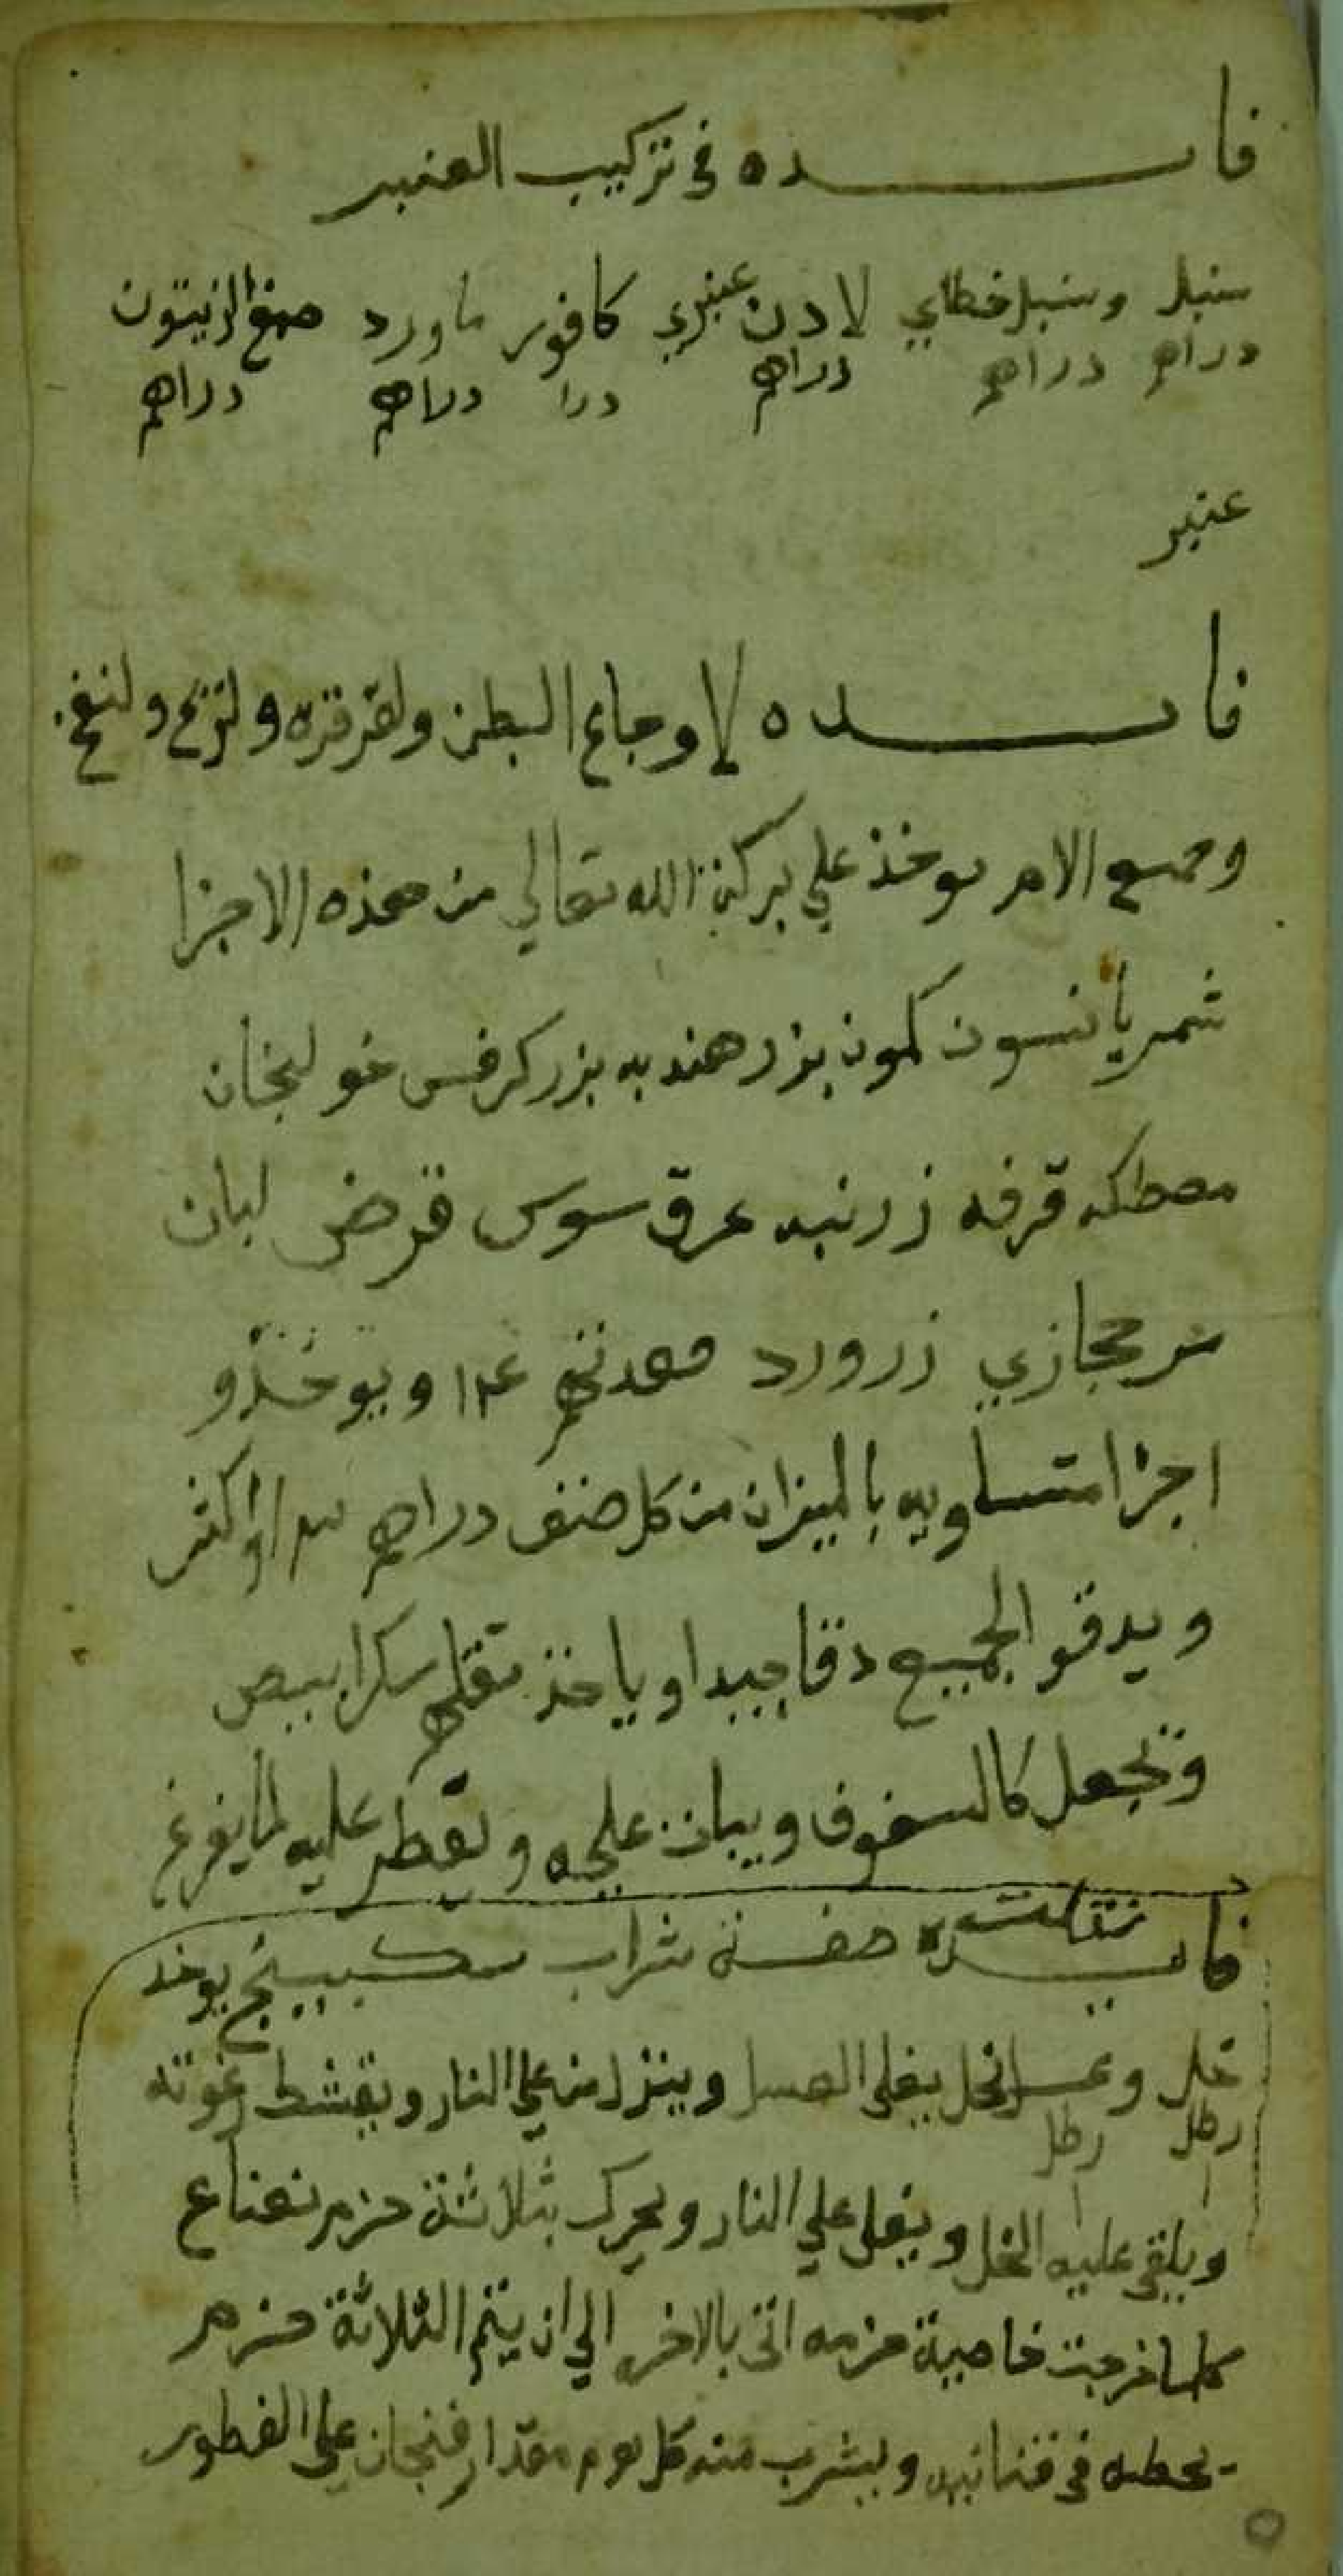 فايده في تركيب العنبر
سنبل وسنبل خطاي لادن عنبري كافور ماورد صمغ الزيتون
دراهم دراهم دراهم درا دراهم دراهم
عنبر
فايده لاوجاع البطن ولقرقره ولتريح ولنفخ
وجميع الامر يوخذ علي بركة الله تعالي من هذه الاجزا
شمر يانسون كمون بزر هندبه بزر كرفس خولنجان
مصطكه قرفه زرنبه عرق سوس قرض لبان
مر حجازي زرورد معدنهم ١٤ ويوخذو
اجزا متساويه بالميزان من كل صنف دراهم او اكثر
ويدقو الجميع دقا جيدا وياخذ تقلهم سكرا بيض
وتجعل كالسفوف ويبات عليه ويقطر عليه لما يفرغ
فايده صفة شراب سكبينج يوخذ
خل وعسل نحل يغلى العسل وينزل من علي النار ويقشط رغوته
رطل رطل
١ ١
ويلقى عليه الخل ويغلى علي النار ويحرك بثلاثة حزم نعناع
كلما خرجت خاصية حزمه اتى بالاخر الي ان يتم الثلاثة حزم
يحطه في قنانيه ويشرب منه كل يوم مقدار فنجان على الفطور